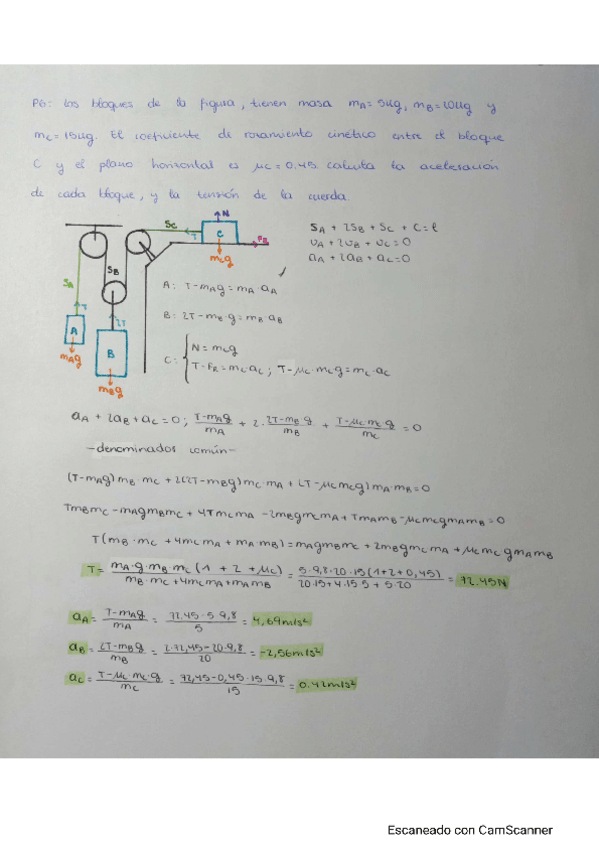 P6: Los bloques de la figura, tienen masa mA=5kg, mB=10kg y
mC=15kg. El coeficiente de rozamiento cinético entre el bloque
C y el plano horizontal es μC=0.45. calcula la aceleración
de cada bloque, y la tensión de la cuerda.
N
SC
T
C
FR
mCg
SA + 2SB + SC + C = l
vA + 2vB + vC = 0
aA + 2aB + aC = 0
SA
SB
T
2T
A
B
mAg
mBg
A: T-mAg = mA aA
B: 2T-mB·g = mB aB
C: { N = mCg
T-FR = mC·aC ; T-μC·mCg = mC·aC
aA + 2aB + aC = 0 ; (T-mAg)/mA + 2·(2T-mBg)/mB + (T-μCmCg)/mC = 0
-denominados común-
(T-mAg)mB·mC + 2(2T-mBg)mC mA + (T-μCmCg)mA·mB = 0
TmBmC - mAgmBmC + 4TmCmA - 2mBgmCmA + TmAmB - μCmCgmAmB = 0
T(mB·mC + 4mCmA + mA·mB) = mAgmBmC + 2mBgmCmA + μCmCgmAmB
T = mA·g·mB·mC(1 + 2 + μC)/(mB·mC + 4mCmA + mAmB) = 5·9,8·20·15(1+2+0,45)/(20·15+4·15·5+5·20) = 72.45N
aA = (T-mAg)/mA = (72.45-5·9,8)/5 = 4,69m/s²
aB = (2T-mBg)/mB = (2·72,45-20·9,8)/20 = -2,56m/s²
aC = (T-μC·mC·g)/mC = (72,45-0,45·15·9,8)/15 = 0.42m/s²
Escaneado con CamScanner